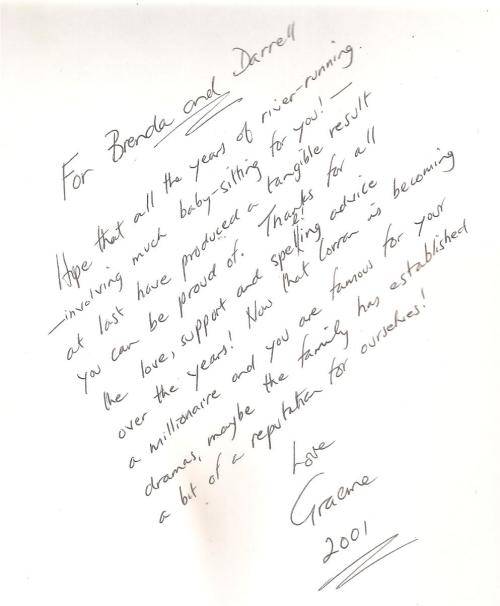 For Brenda and Darrell
Hope that all the years of river-running
– involving much baby-sitting for you! –
at last have produced a tangible result
you can be proud of. Thanks for all
the love, support and spelling advice
over the years! Now that Lorran is becoming
a millionaire and you are famous for your
dramas, maybe the family has established
a bit of a reputation for ourselves!
Love
Graeme
2001